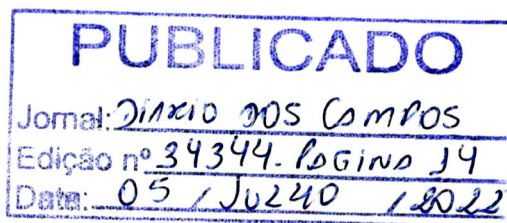 PUBLICADO
Jornal: DIÁRIO DOS CAMPOS
Edição nº 34344. PÁGINA 14
Data: 05 / JULHO / 2022